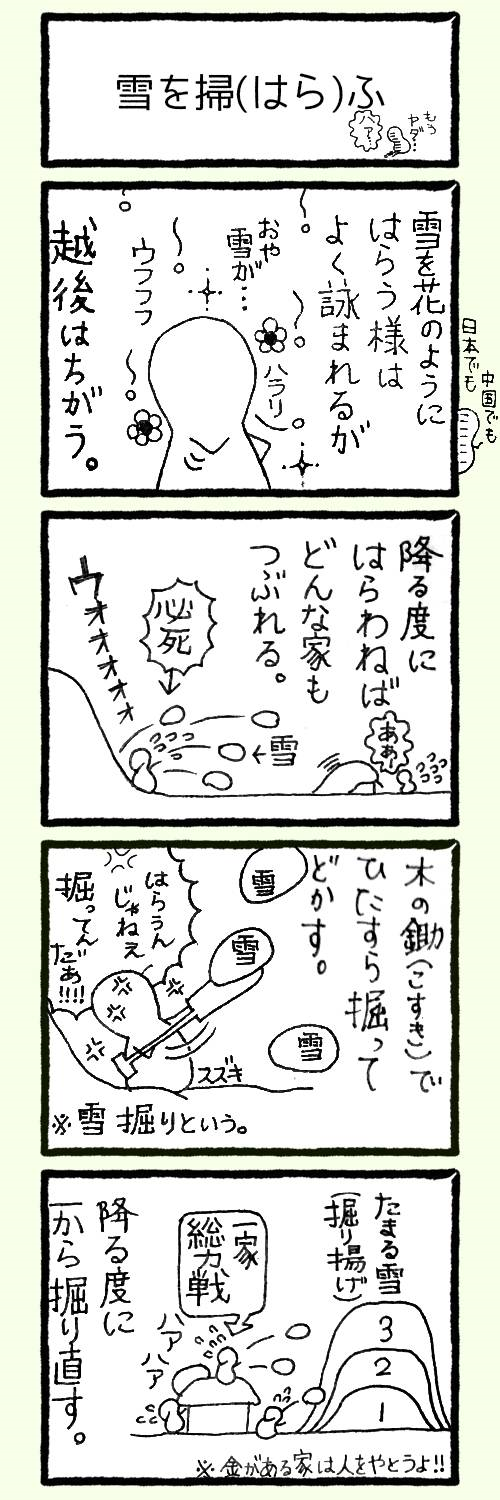 雪を掃(はら)ふ
もう
ヤダ…
ハァ
雪を花のように
はらう様は
よく詠まれるが
越後はちがう。
おや
雪が…
ウフフフ
ハラリ
中国でも
日本でも
降る度に
はらわねば
どんな家も
つぶれる。
必死
ウオオオオオ
←雪
ああー
木の鋤(こすき)で
ひたすら掘って
どかす。
雪
雪
雪
はらうん
じゃねえ
掘ってん
だぁ!!!!
スズキ
※雪掘りという。
たまる雪
(掘り揚げ)
3
2
1
一家
総力戦
ハァ
ハァ
降る度に
一から掘り直す。
※金がある家は人をやとうよ!!